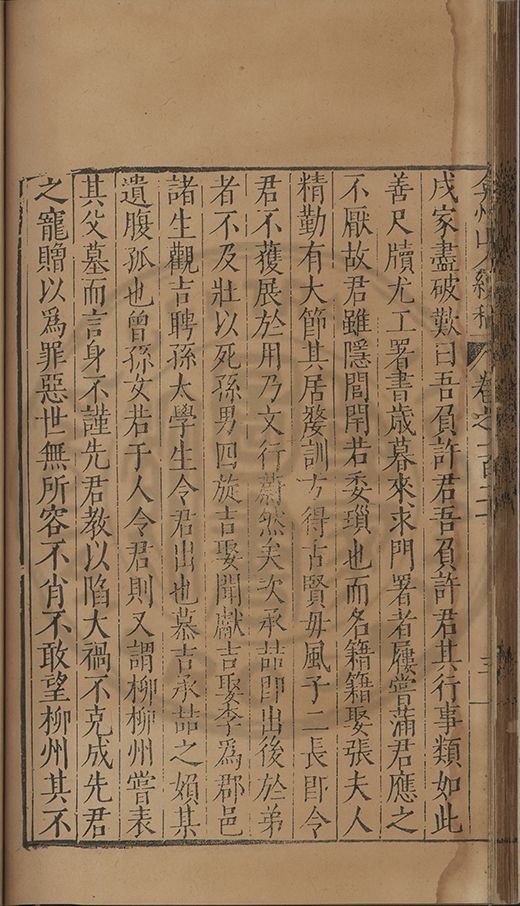 弇州山人續稿 卷之一百二十
戍家盡破歎曰吾負許君吾負許君其行事類如此
善尺牘尤工署書歲暮來求門署者屨嘗蒲君應之
不厭故君雖隱閭閈若委瑣也而名籍籍娶張夫人
精勤有大節其居嫠訓方得古賢毋風子二長卽令
君不獲展於用乃文行蔚然矣次承喆卽出後於弟
者不及壯以死孫男四旋吉娶聞獻吉娶李爲郡邑
諸生觀吉聘孫太學生令君出也慕吉承喆之嬪其
遺腹孤也曾孫女若干人令君則又謂柳柳州嘗表
其父墓而言身不謹先君教以陷大禍不克成先君
之寵贈以爲罪惡世無所容不肖不敢望柳州其不